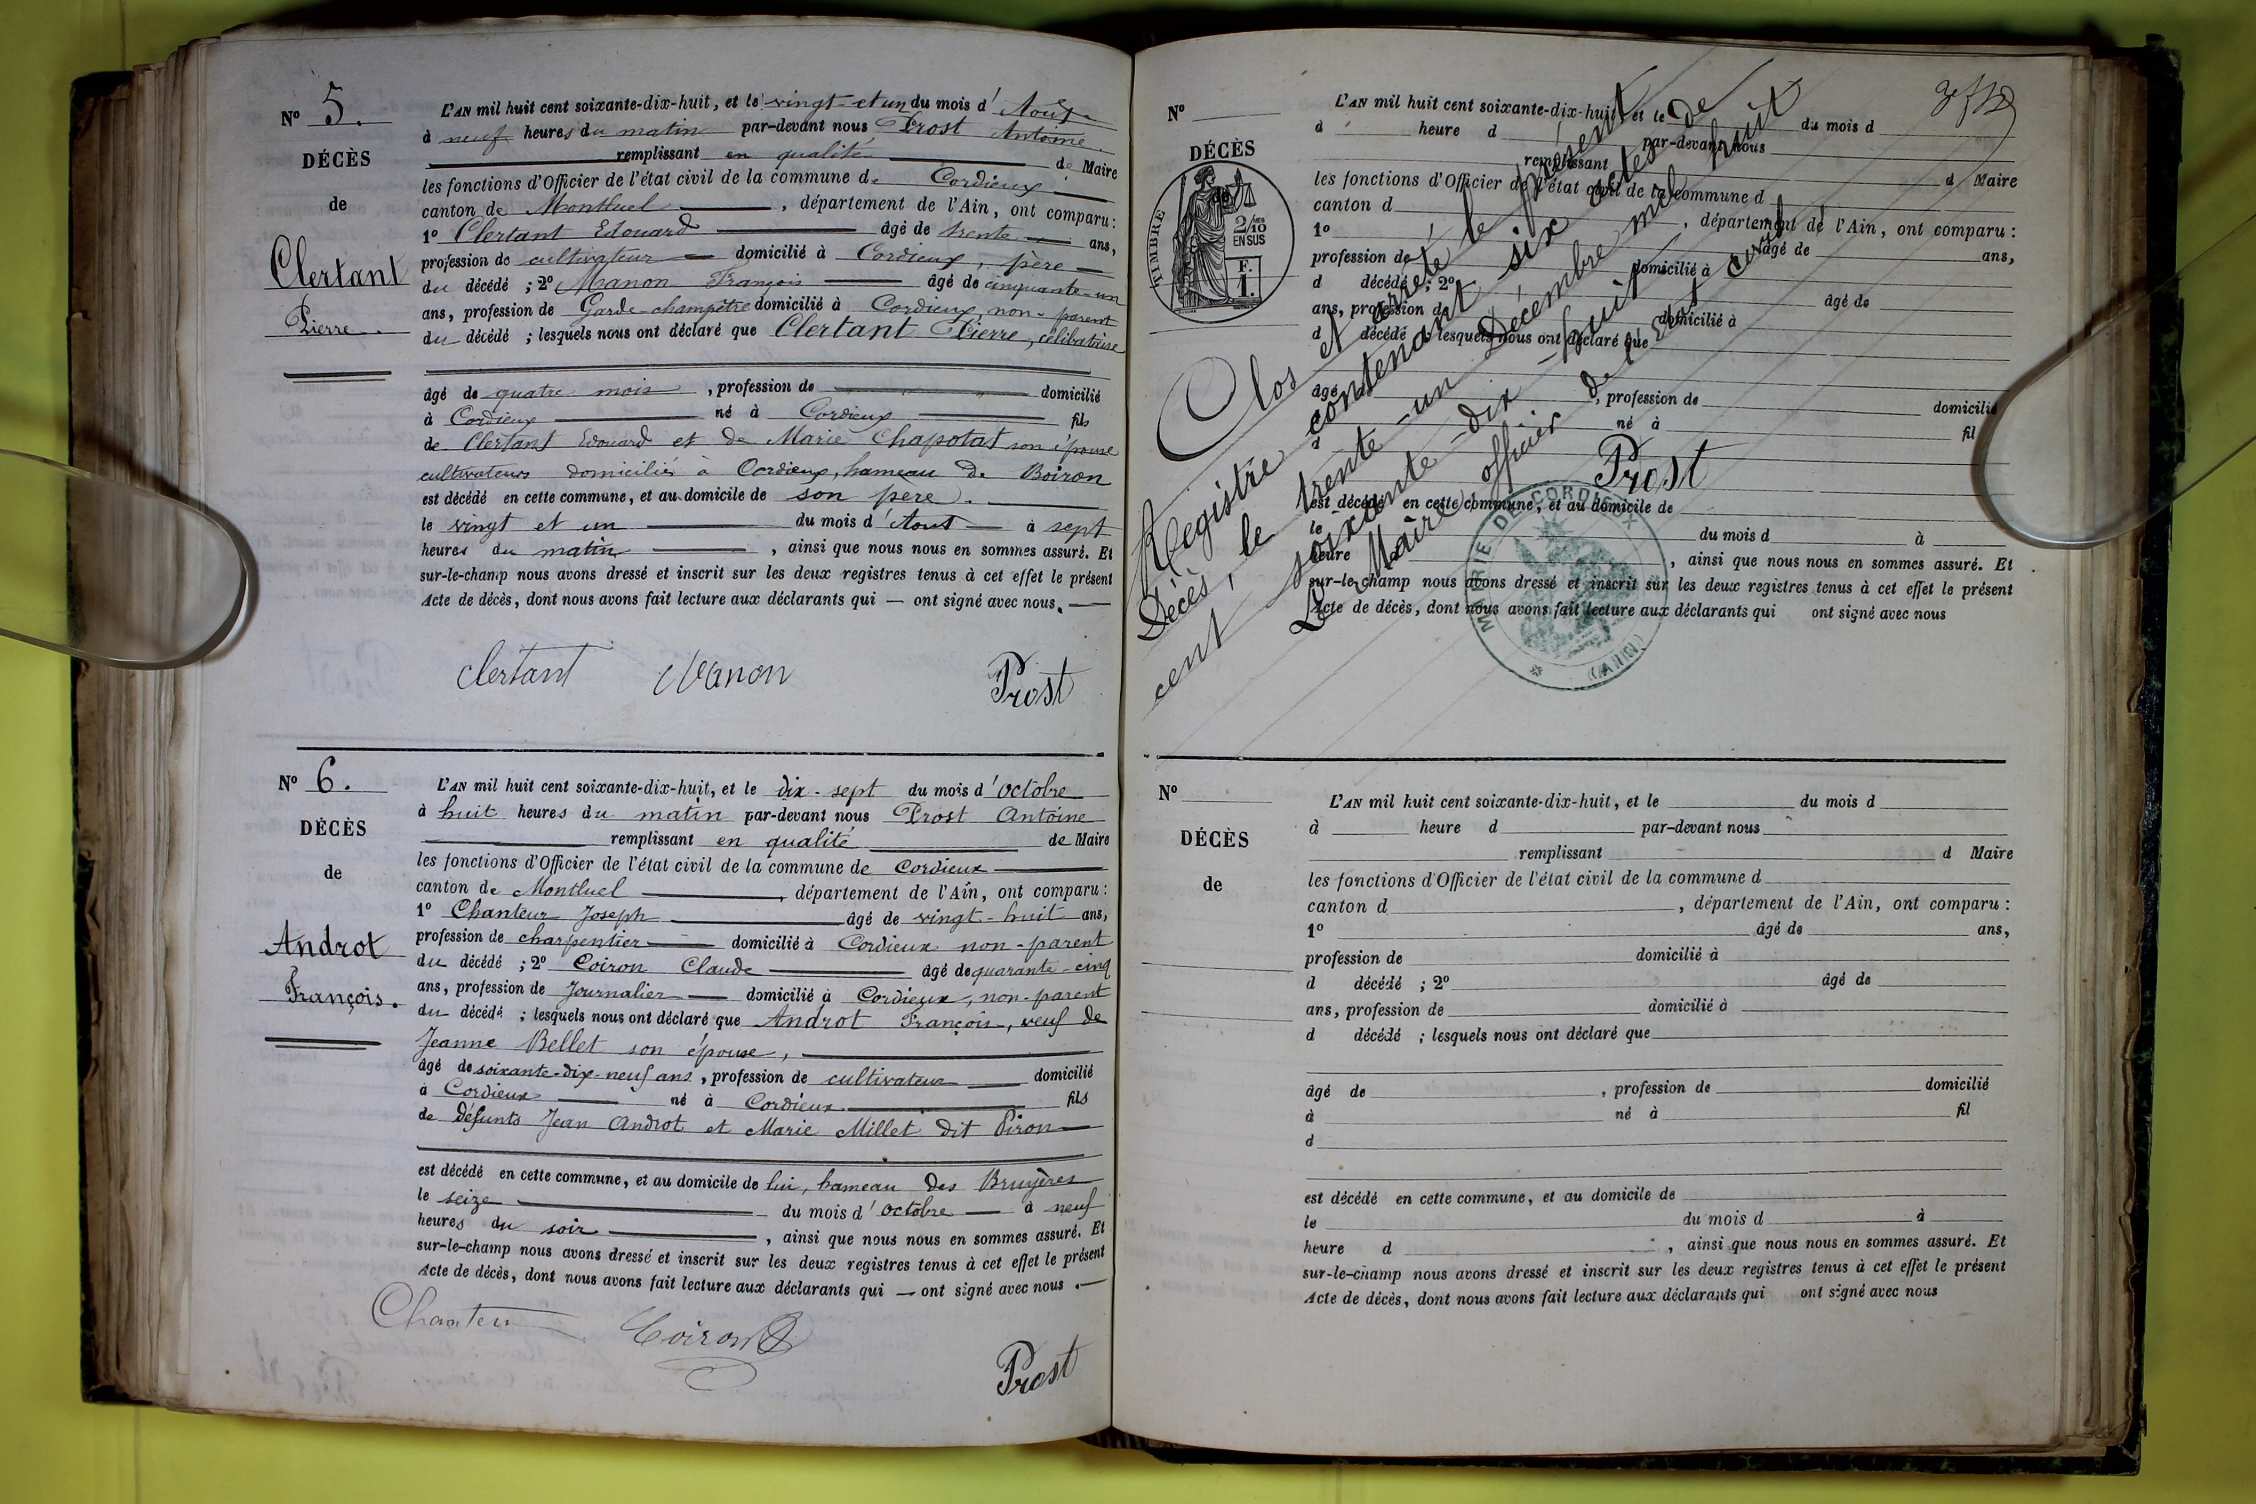 N° 5.
DÉCÈS
de
Clertant
Pierre.
L'AN mil huit cent soixante-dix-huit, et le vingt-et un du mois d'Août
à neuf heures du matin par-devant nous Prost Antoine
remplissant en qualité de Maire
les fonctions d'Officier de l'état civil de la commune de Cordieux
canton de Montluel, département de l'Ain, ont comparu :
1° Clertant Edouard âgé de trente ans,
profession de cultivateur domicilié à Cordieux, père
du décédé ; 2° Manon François âgé de cinquante-un
ans, profession de Garde champêtre domicilié à Cordieux, non-parent
du décédé ; lesquels nous ont déclaré que Clertant Pierre, célibataire
âgé de quatre mois, profession de domicilié
à Cordieux né à Cordieux fils
de Clertant Edouard et de Marie Chapotat son épouse
cultivateurs domiciliés à Cordieux, hameau de Boiron
est décédé en cette commune, et au domicile de son père.
le vingt et un du mois d'Aout à sept
heures du matin, ainsi que nous nous en sommes assuré. Et
sur-le-champ nous avons dressé et inscrit sur les deux registres tenus à cet effet le présent
Acte de décès, dont nous avons fait lecture aux déclarants qui — ont signé avec nous.
Clertant Manon Prost
N° 6.
DÉCÈS
de
Androt
François.
L'AN mil huit cent soixante-dix-huit, et le dix-sept du mois d'octobre
à huit heures du matin par-devant nous Prost Antoine
remplissant en qualité de Maire
les fonctions d'Officier de l'état civil de la commune de Cordieux
canton de Montluel, département de l'Ain, ont comparu :
1° Chanteur Joseph âgé de vingt-huit ans,
profession de charpentier domicilié à Cordieux non-parent
du décédé ; 2° Coiron Claude âgé de quarante-cinq
ans, profession de Journalier domicilié à Cordieux, non-parent
du décédé ; lesquels nous ont déclaré que Androt François, veuf de
Jeanne Bellet son épouse,
âgé de soixante-dix-neuf ans, profession de cultivateur domicilié
à Cordieux né à Cordieux fils
de défunts Jean Androt et Marie Millet dit Piron
est décédé en cette commune, et au domicile de lui, hameau des Bruyères
le seize du mois d'octobre à neuf
heures du soir, ainsi que nous nous en sommes assuré. Et
sur-le-champ nous avons dressé et inscrit sur les deux registres tenus à cet effet le présent
Acte de décès, dont nous avons fait lecture aux déclarants qui — ont signé avec nous.
Chanteur Coiron Prost
N°
DÉCÈS
TIMBRE
2/10
EN SUS
F.
1.
L'AN mil huit cent soixante-dix-huit, et le du mois d
à heure d par-devant nous
remplissant d Maire
les fonctions d'Officier de l'état civil de la commune d
canton d, département de l'Ain, ont comparu :
1° âgé de ans,
profession de domicilié à
d décédé ; 2° âgé de
ans, profession de domicilié à
d décédé ; lesquels nous ont déclaré que
âgé de, profession de domicilié
à né à fil
d
est décédé en cette commune, et au domicile de
le du mois d à
heure d, ainsi que nous nous en sommes assuré. Et
sur-le-champ nous avons dressé et inscrit sur les deux registres tenus à cet effet le présent
Acte de décès, dont nous avons fait lecture aux déclarants qui ont signé avec nous
Clos et arrêté le présent
Registre contenant six actes de
Décès, le trente-un Décembre mil huit
cent soixante-dix-huit
Le Maire, officier de l'Etat civil
Prost
MAIRIE DE CORDIEUX
(AIN)
N°
DÉCÈS
de
L'AN mil huit cent soixante-dix-huit, et le du mois d
à heure d par-devant nous
remplissant d Maire
les fonctions d'Officier de l'état civil de la commune d
canton d, département de l'Ain, ont comparu :
1° âgé de ans,
profession de domicilié à
d décédé ; 2° âgé de
ans, profession de domicilié à
d décédé ; lesquels nous ont déclaré que
âgé de, profession de domicilié
à né à fil
d
est décédé en cette commune, et au domicile de
le du mois d à
heure d, ainsi que nous nous en sommes assuré. Et
sur-le-champ nous avons dressé et inscrit sur les deux registres tenus à cet effet le présent
Acte de décès, dont nous avons fait lecture aux déclarants qui ont signé avec nous